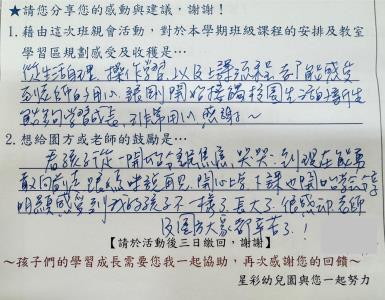 ★請您分享您的感動與建議，謝謝！
1.藉由這次班親會活動，對於本學期班級課程的安排及教室
學習區規劃感受及收穫是…
從生活自理、操作學習，以及上課流程，都能感受
到老師的用心，讓剛開始接觸校園生活的新生
能夠學習成長，到非常用心，感謝～
2.想給園方或老師的鼓勵是…
看孩子從一開始分離焦慮哭哭，到現在能勇
敢向前走，跟爸媽說再見，開心上下課，也開始學會
明顯感受到我的孩子不一樣了，長大了，很感動，老師
及園方大家都辛苦了！
【請於活動後三日繳回，謝謝】
～孩子們的學習成長需要您我一起協助，再次感謝您的回饋～
星彩幼兒園與您一起努力